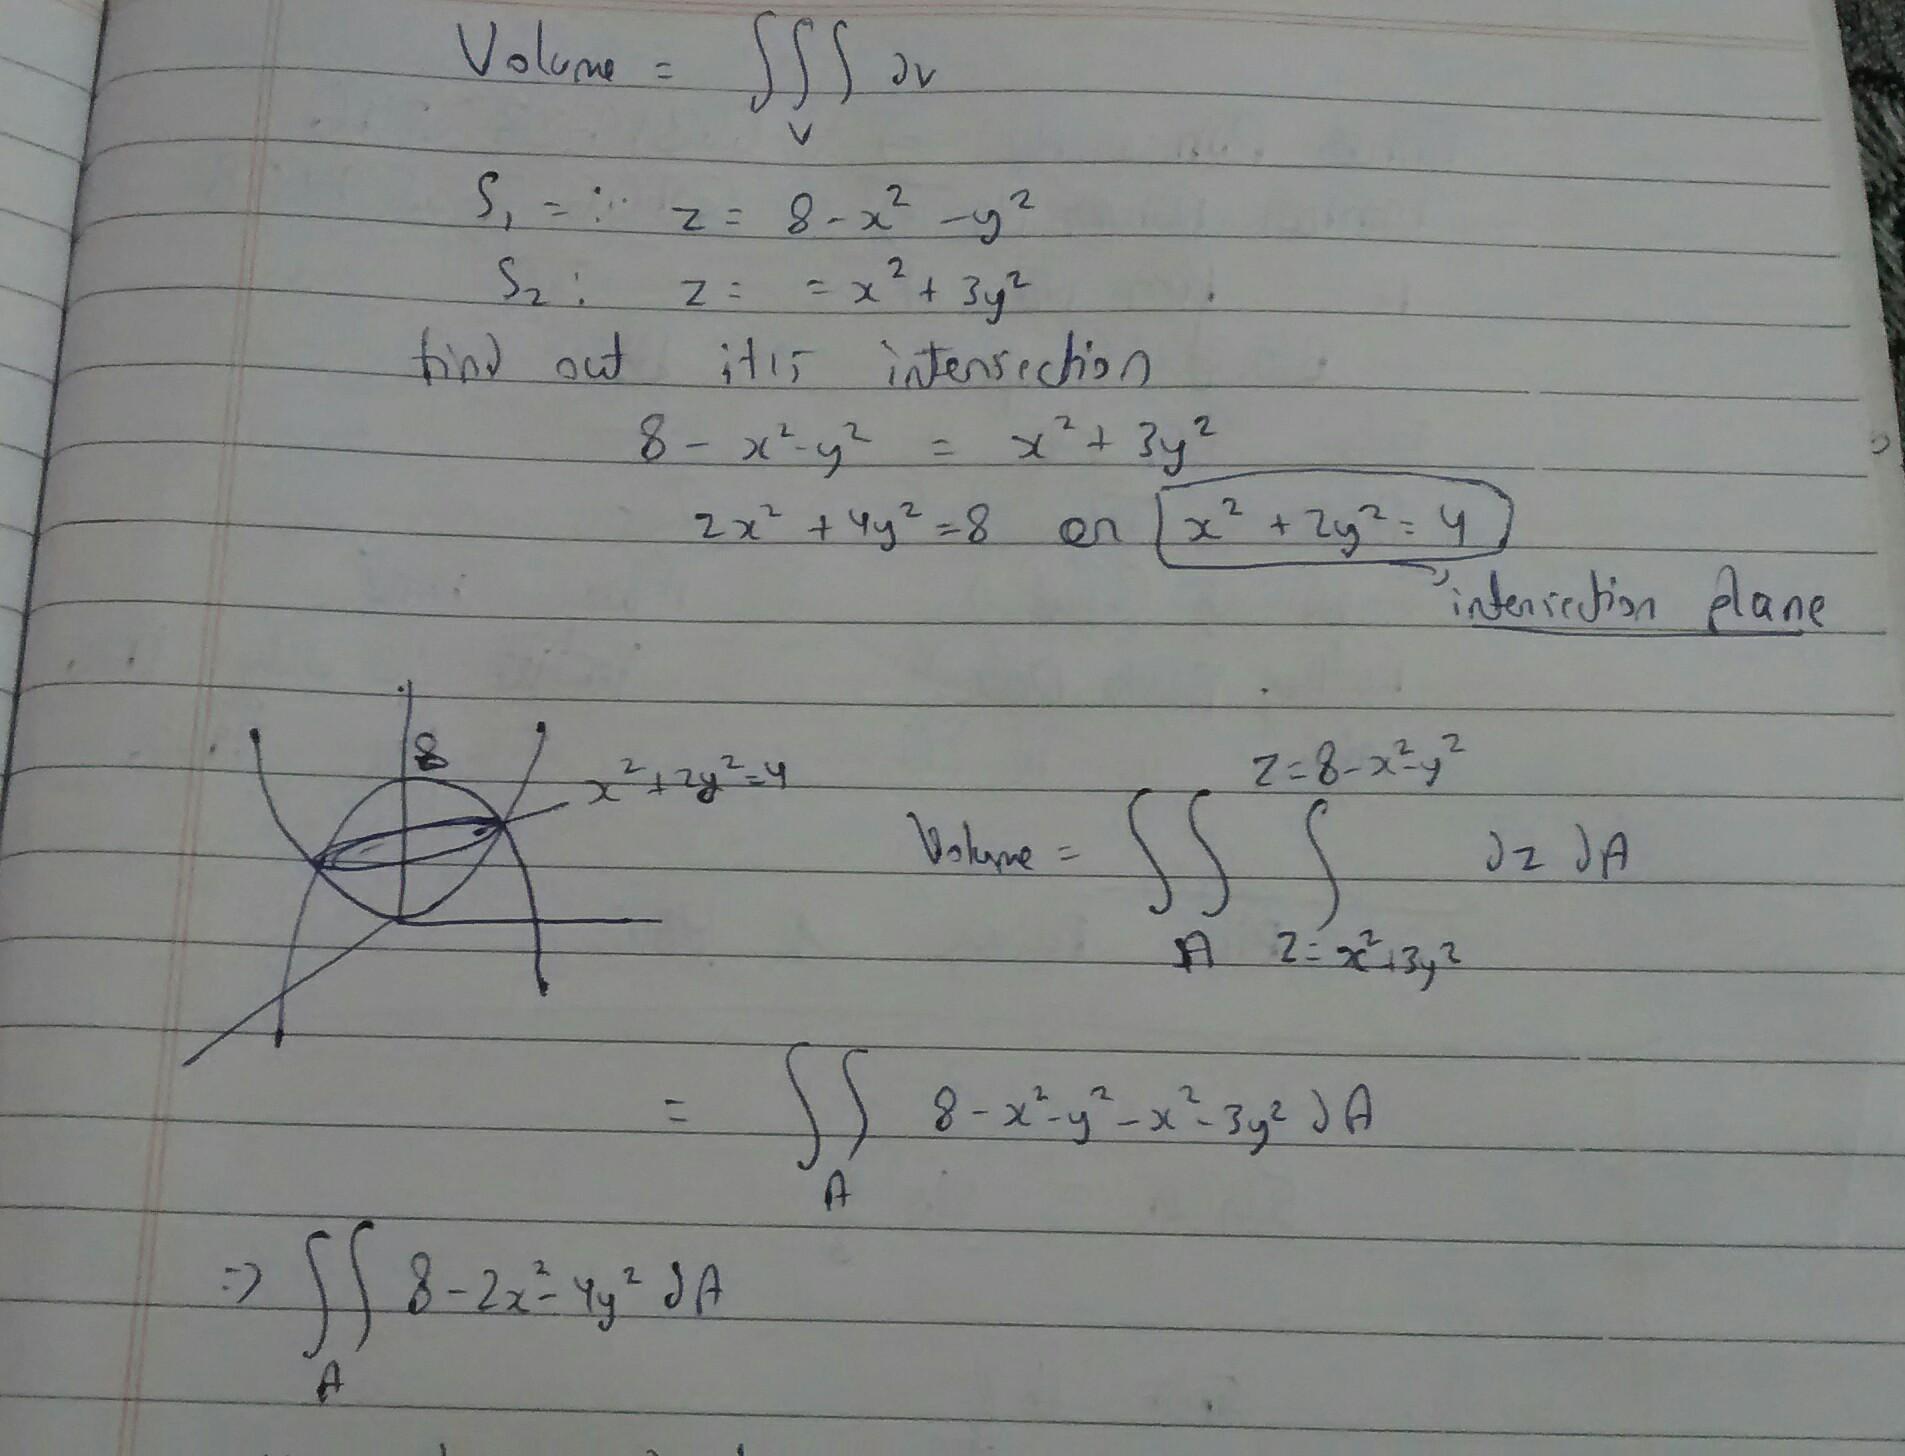 Volume = ∭ ∂v
V
S₁ = ∴ z = 8 - x² - y²
S₂ : z = = x² + 3y²
find out it's intersection
8 - x² - y² = x² + 3y²
2x² + 4y² = 8 or x² + 2y² = 4
intersection plane
8
x² + 2y² = 4
z = 8 - x² - y²
Volume = ∬ ∫ ∂z ∂A
A z = x² + 3y²
= ∬ 8 - x² - y² - x² - 3y² ∂A
A
=> ∬ 8 - 2x² - 4y² ∂A
A